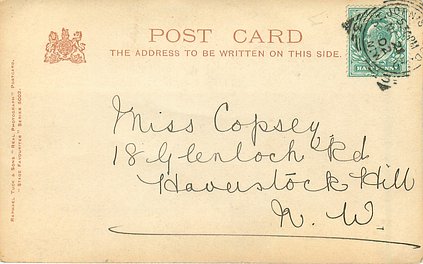 POST CARD
THE ADDRESS TO BE WRITTEN ON THIS SIDE.
RAPHAEL TUCK & SONS' "REAL PHOTOGRAPH" POSTCARD.
"STAGE FAVOURITES" SERIES 5002.
Miss Copsey,
18 Glenloch Rd
Haverstock Hill
N. W.